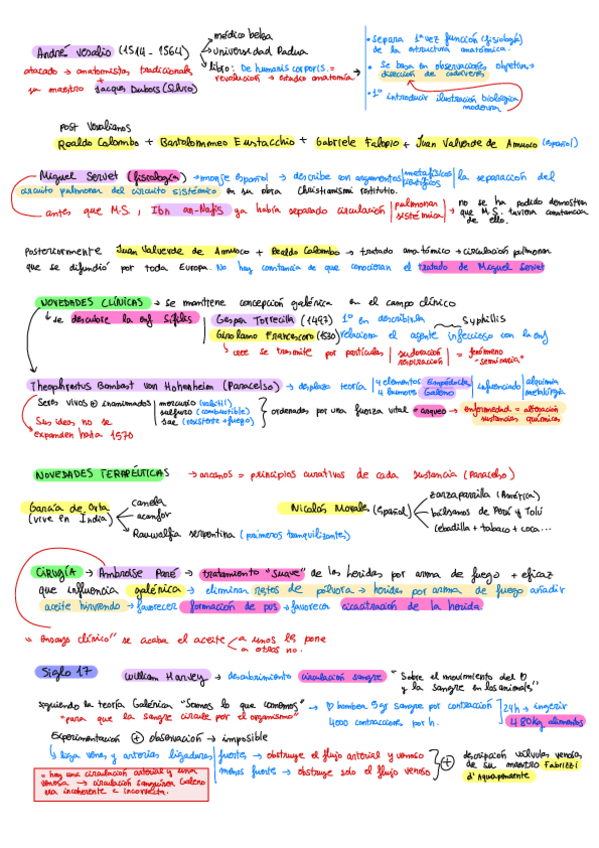 médico belga
André Vesalio (1514-1564) → Universidad Padua
libro: De humanis corporis =
revolución → estudio anatomía
atacado → anatomistas tradicionales
su maestro Jacques Dubois (Silvio)
• separa 1ª vez función (fisiología)
de la estructura anatómica.
• Se basa en observaciones objetivas =
disección de cadáveres
• 1º introducir ilustración biológica
moderna
Post Vesalianos
Realdo Colombo + Bartolommeo Eustacchio + Gabriele Falopio + Juan Valverde de Amusco (español)
Miguel Servet (fisiología) → monje español → describe con argumentos | metafísicos | científicos | la separación del
circuito pulmonar del circuito sistémico en su obra Christianismi restitutio.
antes que M.S, Ibn an-Nafis ya había separado circulación | pulmonar | sistémica → no se ha podido demostrar
que M.S. tuviera constancia
de ello.
Posteriormente Juan Valverde de Amusco + Realdo Colombo → tratado anatómico → circulación pulmonar
que se difundió por toda Europa. No hay constancia de que conocieran el tratado de Miguel Servet
NOVEDADES CLÍNICAS → se mantiene concepción galénica en el campo clínico
↳ se descubre la enf Sífilis | Gaspar Torrecilla (1497) 1º en describirla Syphillis
Girolamo Francescoro (1530) relaciona el agente infeccioso con la enf
↳ cree se transmite por partículas | sudoración | respiración | = fenómeno
"seminaria"
Theophrastus Bombast von Hohenheim (Paracelso) → desplaza teoría | 4 elementos Empédocles | 4 humores Galeno | influenciado | alquimia | metalurgia
Seres vivos + inanimados | mercurio (volátil)
sulfuro (combustible)
sal (resistente + fuego)
} ordenados por una fuerza vital = arqueo → enfermedad = alteración
sustancias químicas
Sus ideas no se
expanden hasta 1570
NOVEDADES TERAPÉUTICAS → arcanos = principios curativos de cada sustancia (Paracelso)
García de Orta
(vive en India)
canela
alcanfor
Rauwalfia serpentina (primeros tranquilizantes)
Nicolás Morales (español)
zarzaparrilla (América)
bálsamos de Perú y Tolú
cebadilla + tabaco + coca...
CIRUGÍA → Ambroise Paré → tratamiento "suave" de las heridas por arma de fuego + eficaz
que influencia galénica → eliminar restos de pólvora → heridas por arma de fuego añadir
aceite hirviendo → favorecer formación de pus → favorecer cicatrización de la herida
"ensayo clínico" se acaba el aceite
a unos les pone
a otros no.
Siglo 17 William Harvey → descubrimiento circulación sangre "Sobre el movimiento del ♡
y la sangre en los animales"
siguiendo la teoría Galénica "Somos lo que comemos" → ♡ bombea 5gr sangre por contracción
4000 contracciones por h. ] 24h → ingerir
480kg alimentos
"para que la sangre circule por el organismo"
Experimentación + observación → imposible
↳ liga venas y arterias ligaduras | fuertes → obstruye el flujo arterial y venoso
menos fuerte → obstruye solo el flujo venoso
+ descripción válvulas venosas
de su maestro Fabrizzi
d'Aquapendente
= hay una circulación arterial y una
venosa → circulación sanguínea Galeno
era incoherente e incorrecta.